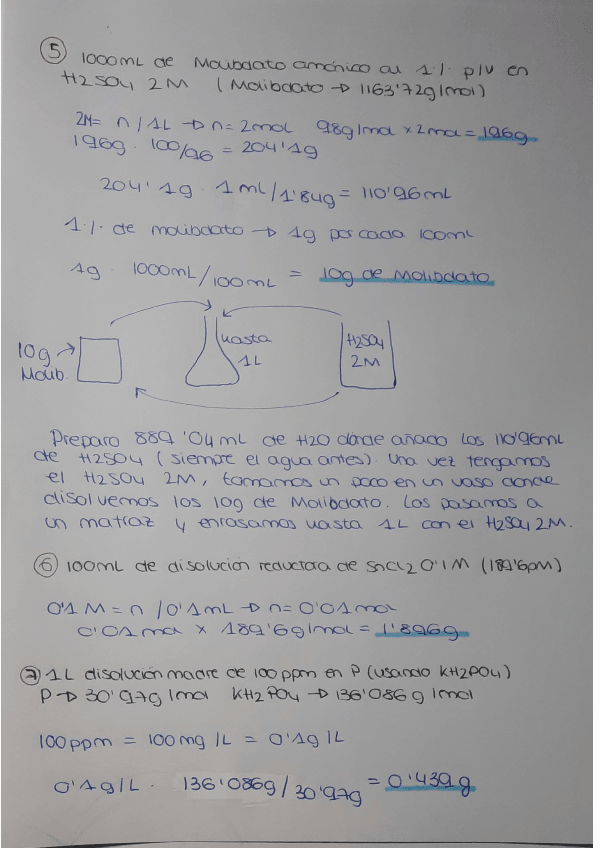 5 1000mL de Molibdato amónico al 1% p/v en
H2SO4 2M (Molibdato → 1163'72g/mol)
2M = n / 1L → n = 2mol 98g/mol x 2mol = 196g
196g · 100/96 = 204'1g
204'1g · 1mL/1'84g = 110'96mL
1% de molibdato → 1g por cada 100mL
1g · 1000mL/100mL = 10g de Molibdato
10g Molib. → hasta 1L H2SO4 2M
Preparo 889'04mL de H2O dónde añado los 110'96mL
de H2SO4 (siempre el agua antes). Una vez tengamos
el H2SO4 2M, tomamos un poco en un vaso donde
disolvemos los 10g de Molibdato. Los pasamos a
un matraz y enrasamos hasta 1L con el H2SO4 2M.
6 100mL de disolución reductora de SnCl2 0'1M (189'6pM)
0'1M = n / 0'1mL → n = 0'01mol
0'01mol x 189'6g/mol = 1'896g
7 1L disolución madre de 100ppm en P (usando KH2PO4)
P → 30'97g/mol KH2PO4 → 136'086g/mol
100ppm = 100mg/L = 0'1g/L
0'1g/L · 136'086g/30'97g = 0'439g